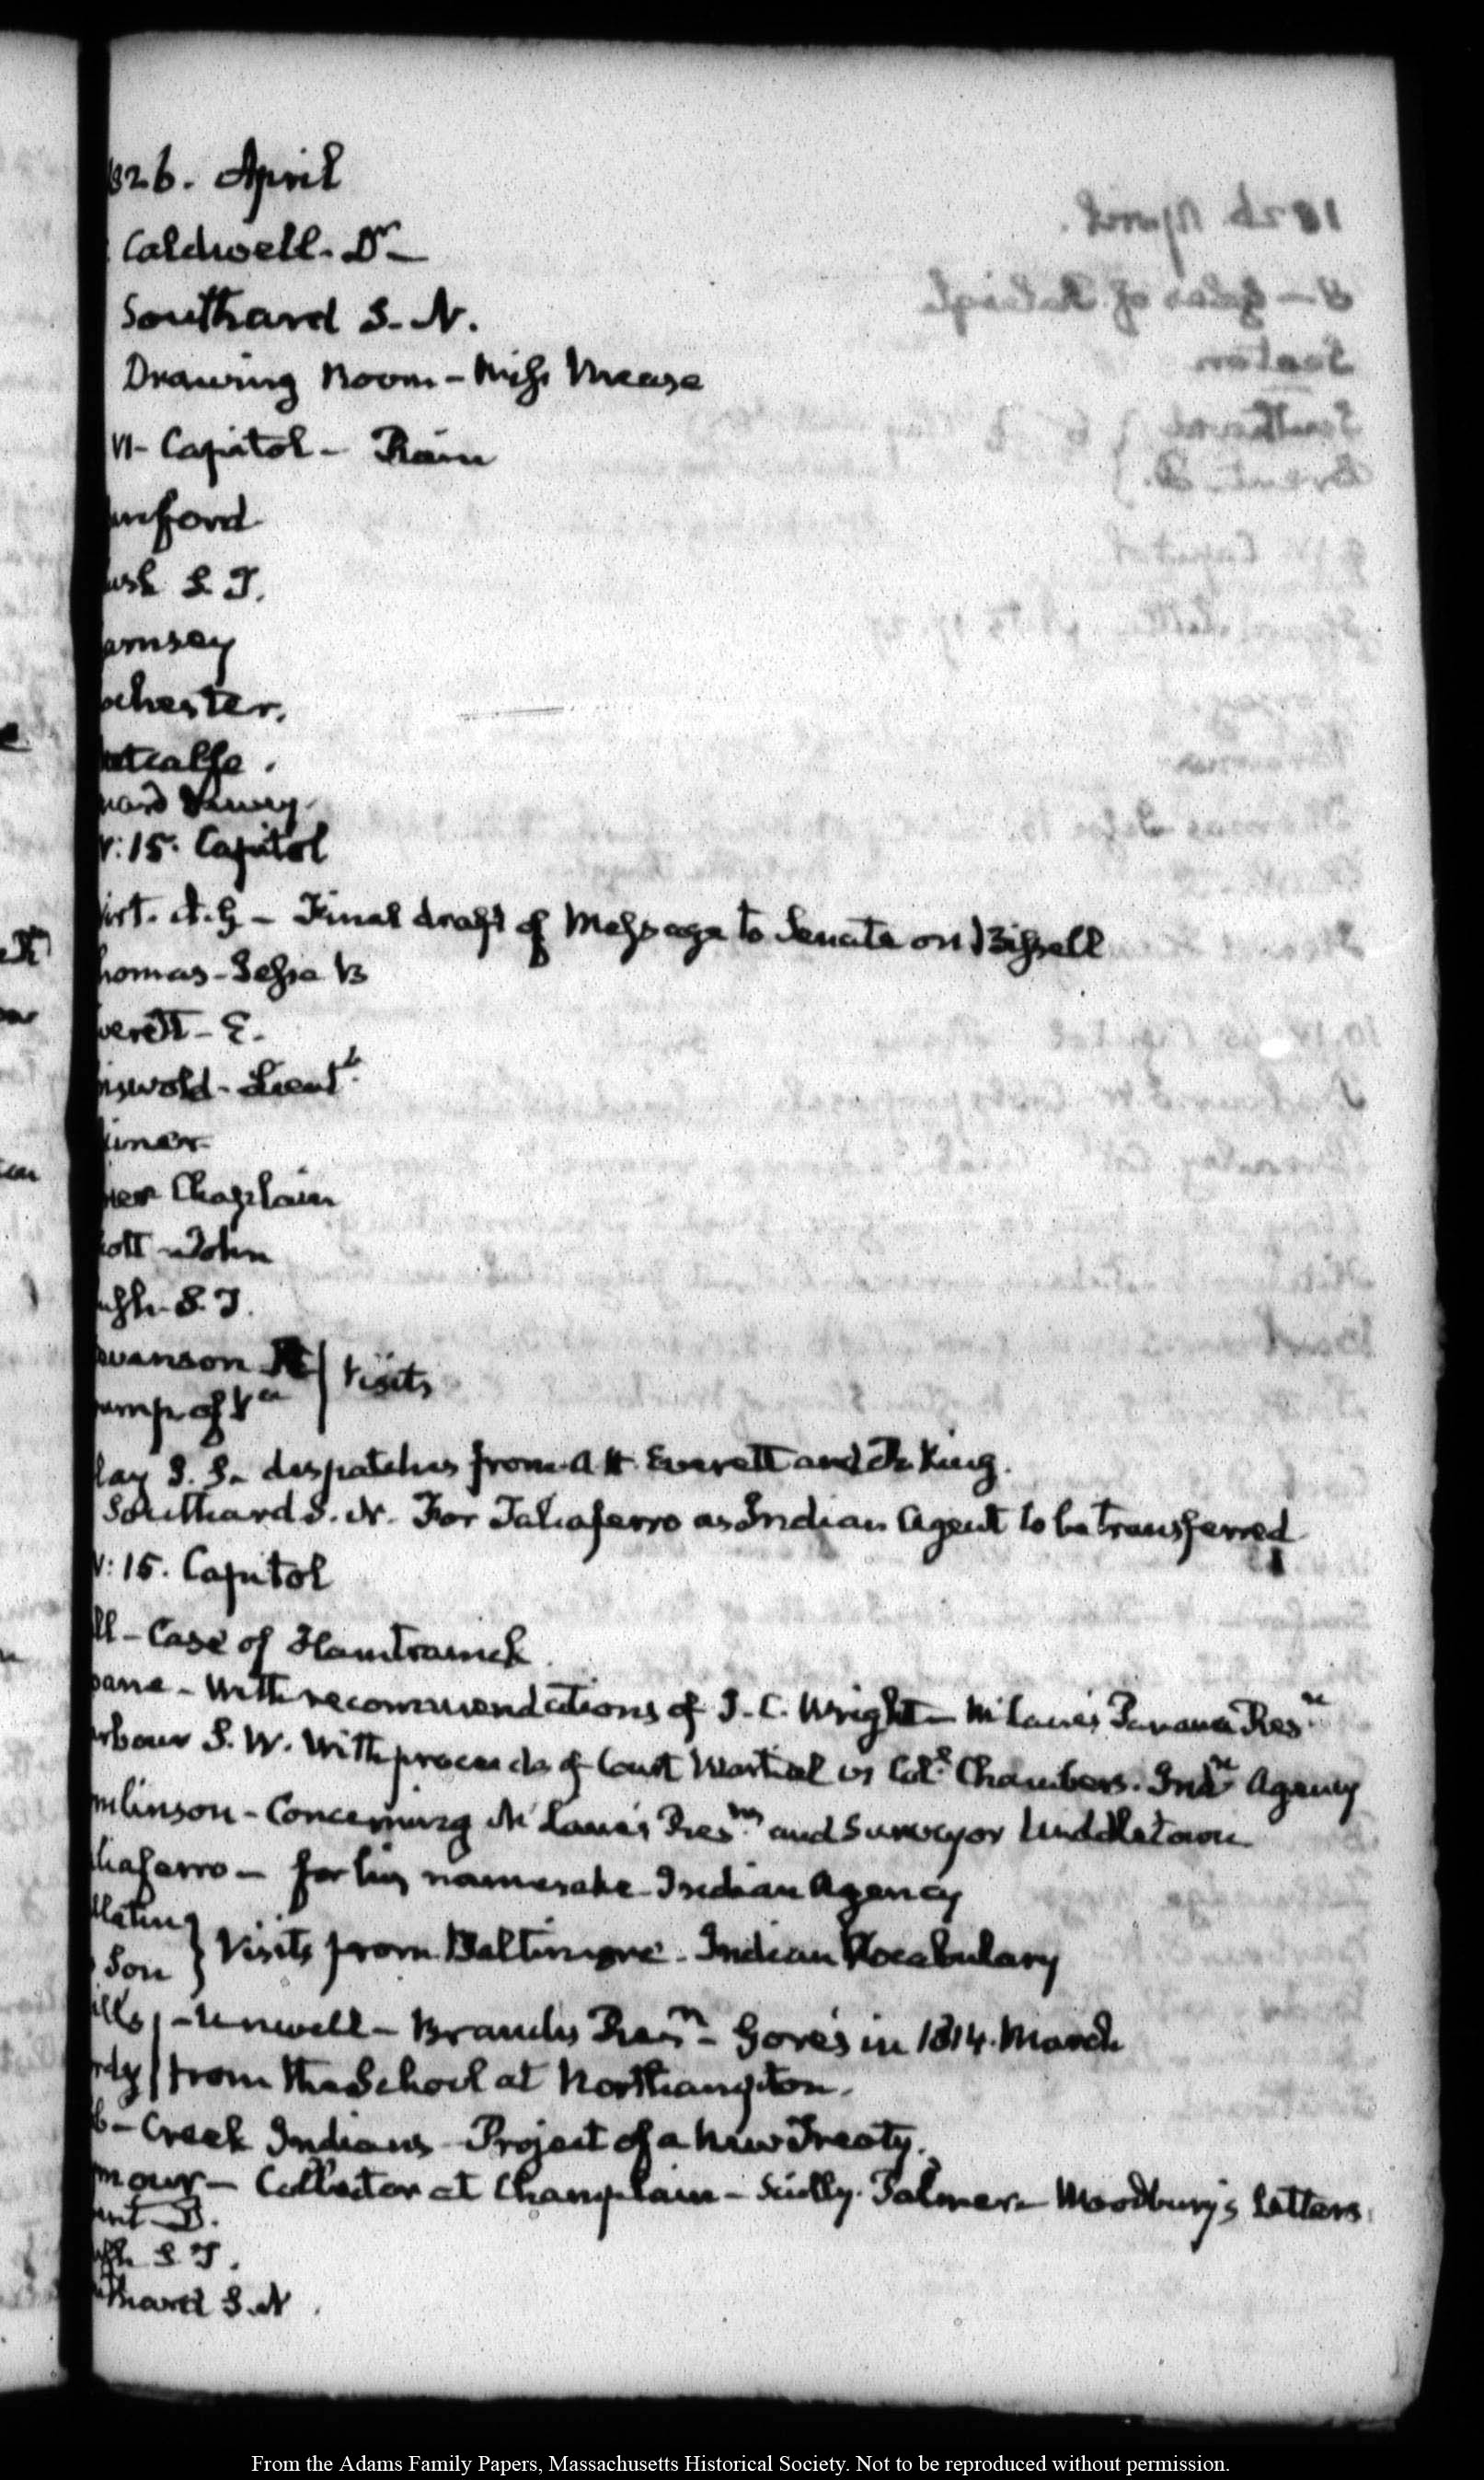 826. April
Caldwell. Dr
Southard S. N.
Drawing Room - Miss Mease
VI - Capitol - Rain
anford
ush S T.
amsey
ochester.
etcalfe.
uard
V: 15. Capitol
irt. A. G - Final draft of Message to Senate on Bissell
homas - Jesse B
verett - E.
riswold - Lieutt.
iner
ier Chaplain
ott - John
ush. S. T.
wanson
amp of Va } Visits
lay S. S. despatches from A H. Everett and R. King.
Southard S. N. For Taliaferro as Indian Agent to be transferred
V: 15. Capitol
ll - Case of Hamtramck
oane - With recommendations of J. C. Wright - McLane's Panama Resn
rbour S. W. With proceeds of Court Martial vs Coll Chambers. Indn Agency
mlinson - Concerning McLane's Resns and Surveyor Middletown
liaferro - for his namesake - Indian Agency
llatin
Son } Visits from Baltimore - Indian Vocabulary
ills - Unwell - Branch's Resn - Gore's in 1814. March
rdy from the School at Northampton.
b - Creek Indians - Project of a New Treaty.
mour - Collector at Champlain - Palmer - Woodbury's letters
ent D.
sh S T.
thard S. N
From the Adams Family Papers, Massachusetts Historical Society. Not to be reproduced without permission.